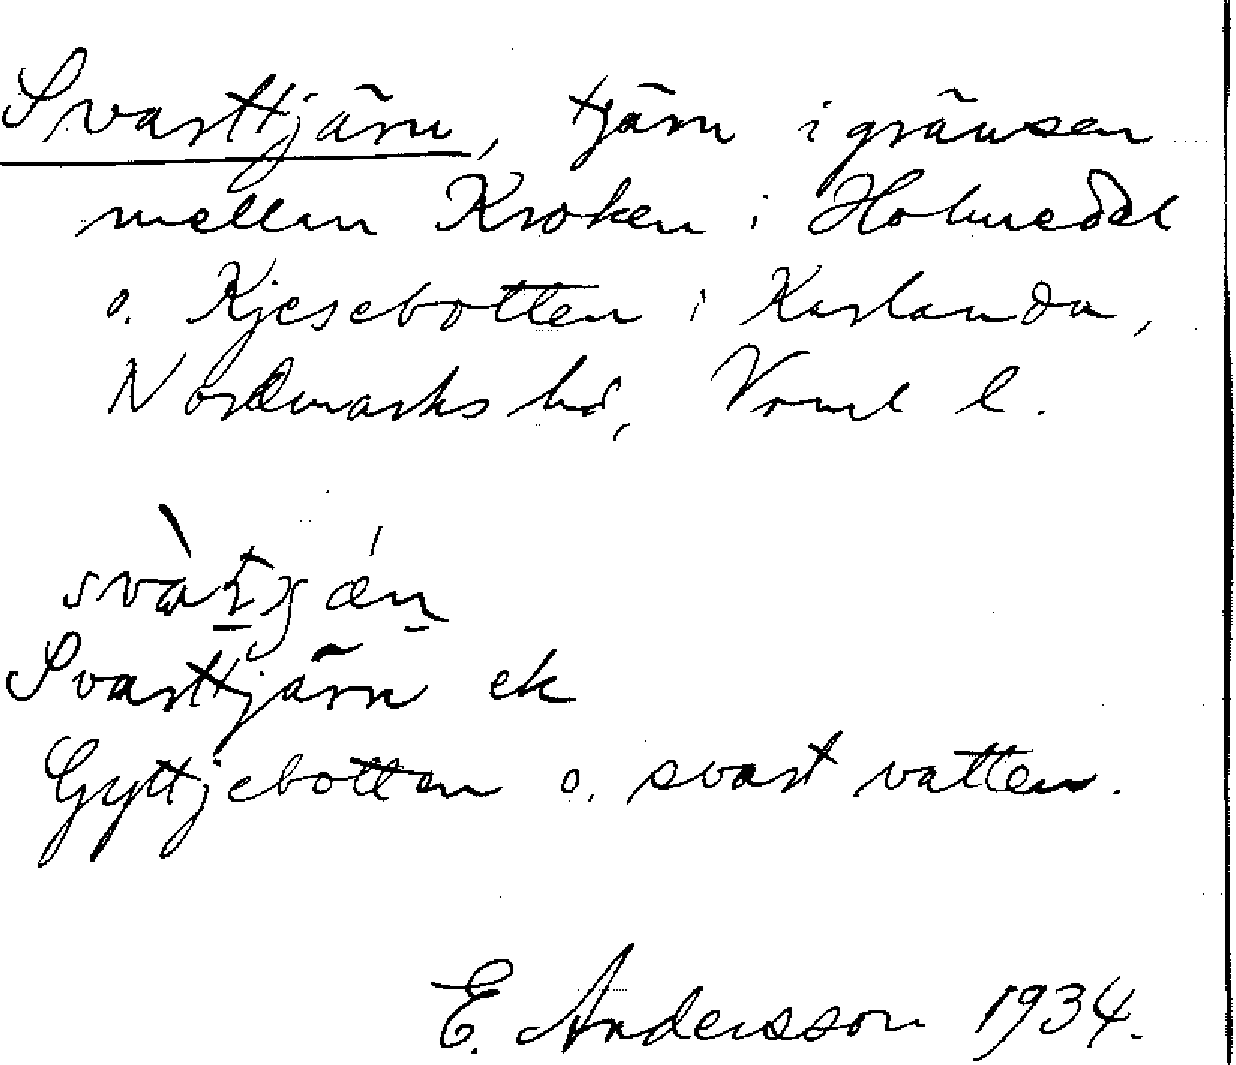 Svarttjärn, tjärn i gränsen
mellan Kroken i Holmedal
o. Kjesebotten i Karlanda,
Nordmarks hd, Vrml l.
Svarttjärn ek
Gyttjebotten o. svart vatten.
E. Andersson 1934.